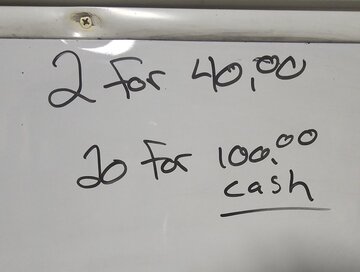 2 for 40.00
20 for 100.00
cash